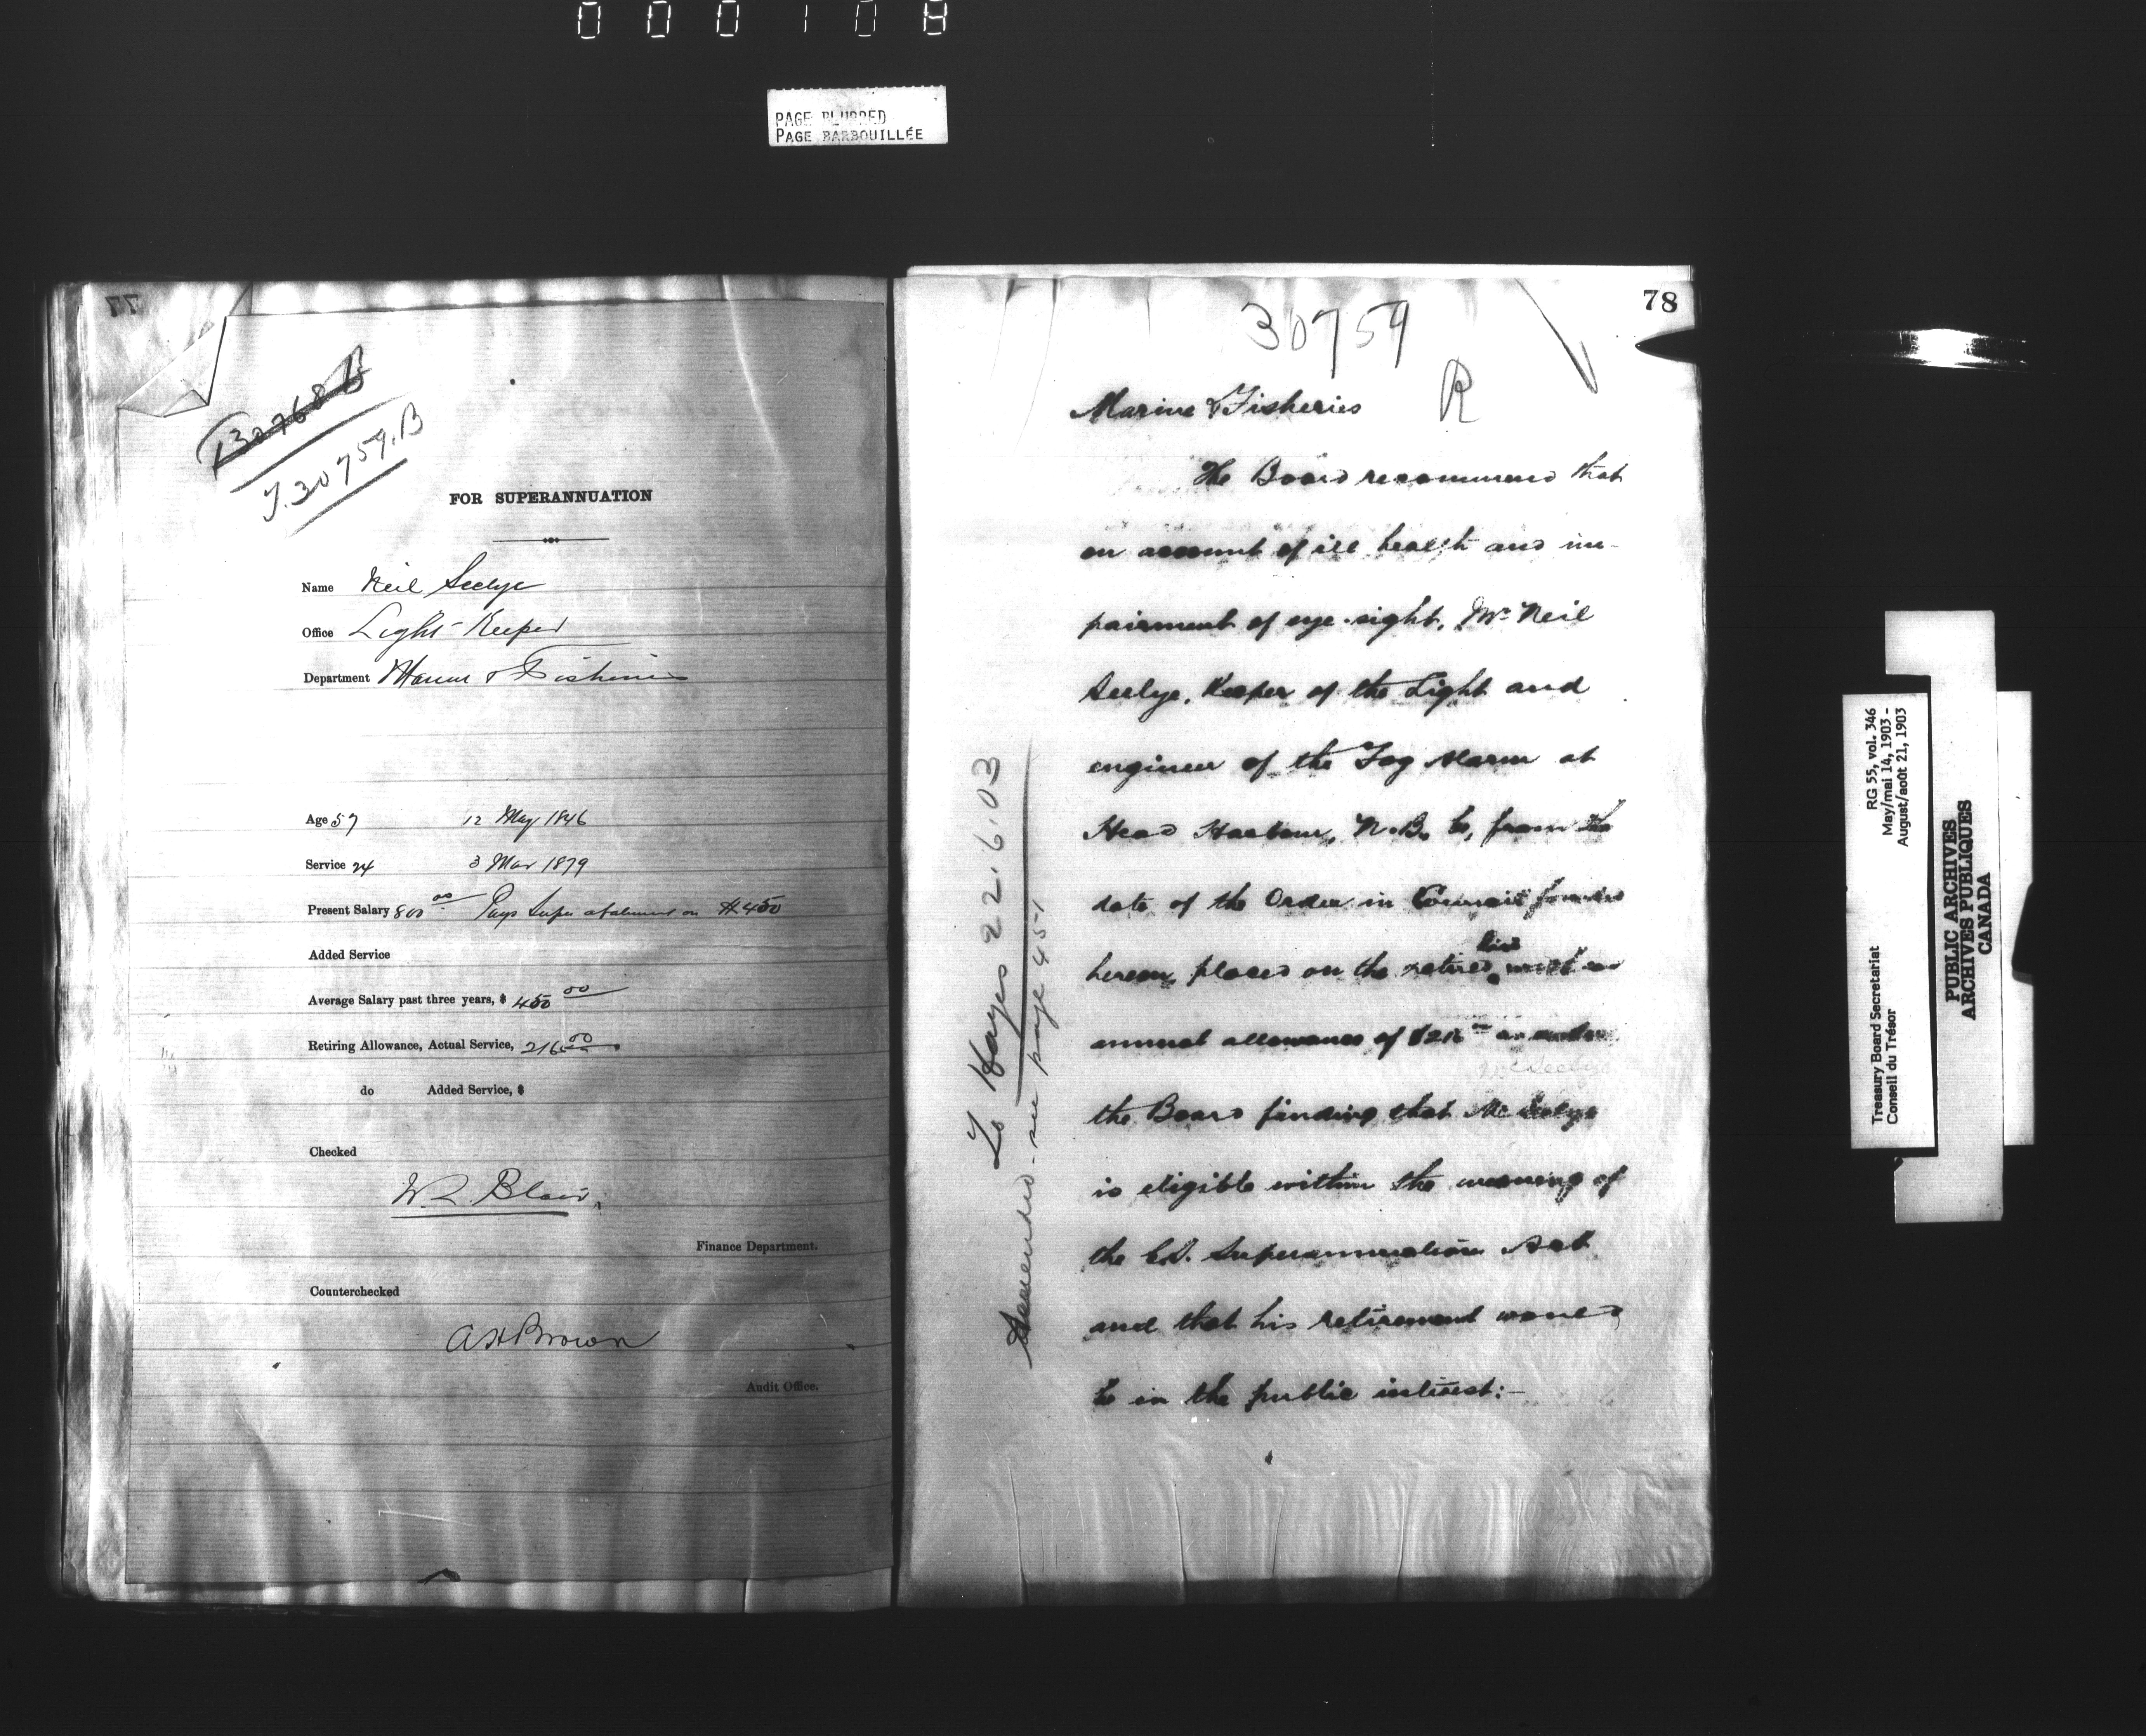 000108
PAGE BLURRED
PAGE BARBOUILLÉE
77
T30768B
T.30759.B
FOR SUPERANNUATION
Name Neil Seelye
Office Light-Keeper
Department Marine & Fisheries
Age 57 12 May 1846
Service 24 3 Mar 1879
Present Salary 800 00 Pays Super abatement on $450
Added Service
Average Salary past three years, $ 450 00
Retiring Allowance, Actual Service, 216 00
do Added Service, $
Checked
W Blair
Finance Department.
Counterchecked
A H Brown
Audit Office.
78
30759
R
Marine & Fisheries
The Board recommend that
on account of ill health and im-
pairment of eye-sight, Mr Neil
Seelye, Keeper of the Light and
engineer of the Fog Alarm at
Head Harbour, N.B. be, from the
date of the Order in Council founded
hereon, placed on the retired list with an
annual allowance of $216 00 as under
Mr Seelye
the Board finding that Mr Seelye
is eligible within the meaning of
the C.S. Superannuation Act
and that his retirement would
be in the public interest:-
To Hayes 22.6.03
Amended - see page 451
RG 55, vol. 346
May/mai 14, 1903 -
August/août 21, 1903
Treasury Board Secretariat
Conseil du Trésor
PUBLIC ARCHIVES
ARCHIVES PUBLIQUES
CANADA